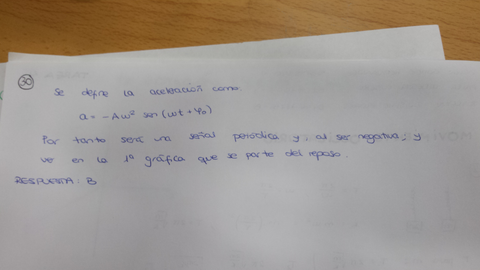 30
Se define la aceleración como:
a = -Aω² sen (ωt + φ₀)
Por tanto será una señal periódica y, al ser negativa, y
ve en la 1ª gráfica que se parte del reposo.
RESPUESTA: B